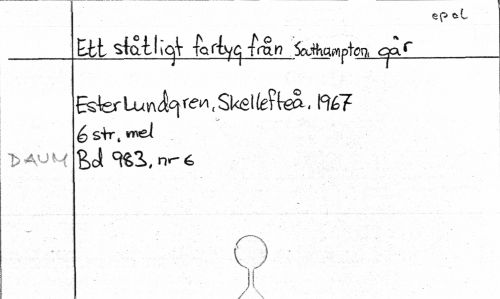 epol
Ett ståtligt fartyg från Southampton går
Ester Lundgren, Skellefteå, 1967
6 str, mel
DAUM Bd 983, nr 6